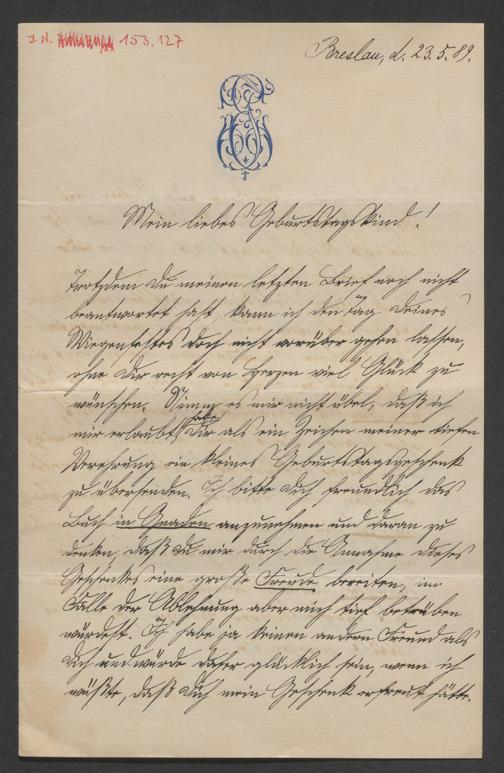 J. N. 153.127
Breslau, d. 23.5.89.
Mein liebes Geburtstagskind!
Trotzdem Du meinen letzten Brief noch nicht
beantwortet hast kann ich den Tag Deines
Wiegenfestes doch nicht vorüber gehen lassen,
ohne Dir recht von Herzen viel Glück zu
wünschen. Nimm es mir nicht übel, daß ich
mir erlaubt habe Dir als ein Zeichen meiner tiefen
Verehrung ein kleines Geburtstagsgeschenk
zu übersenden. Ich bitte Dich freundlich das
Buch in Gnaden anzunehmen und daran zu
denken, daß Du mir durch die Annahme dieses
Geschenkes eine große Freude bereiten, im
Falle der Ablehnung aber mich tief betrüben
würdest. Ich habe ja keinen andern Freund als
Dich und würde daher glücklich sein, wenn ich
wüßte, daß Dich mein Geschenk erfreut hätte.